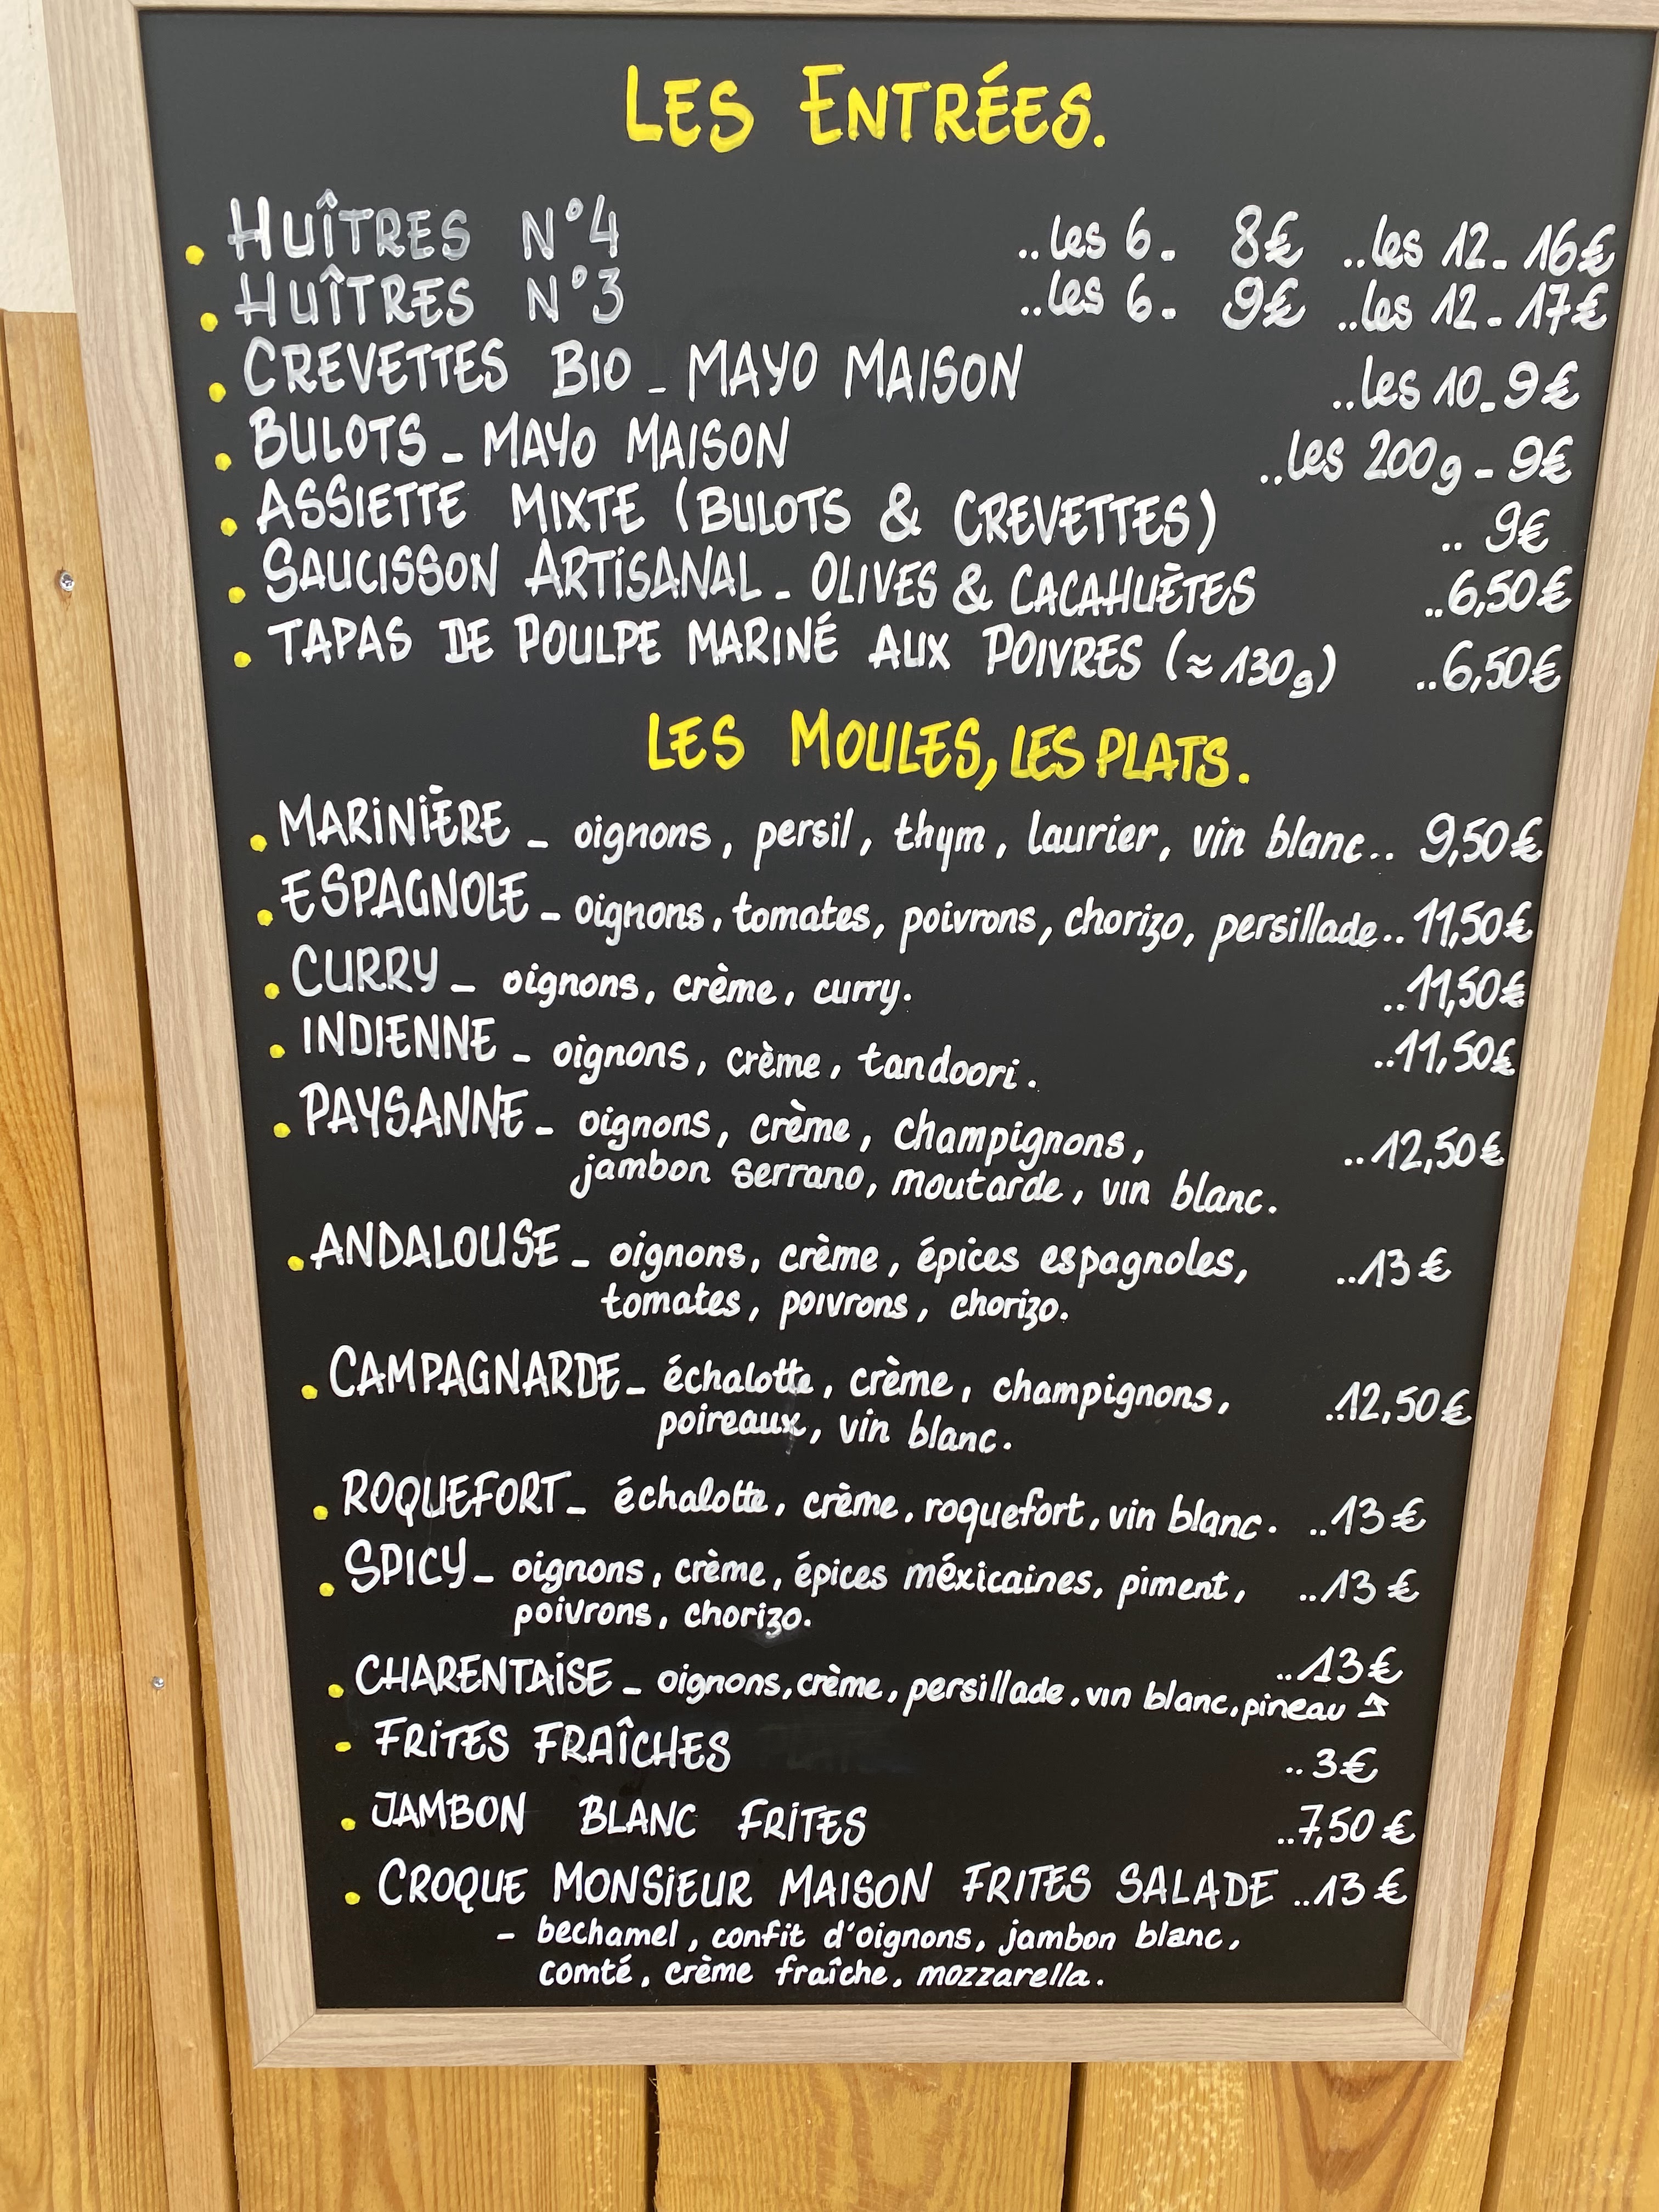 LES ENTRÉES.
HUÎTRES N°4 ..les 6. 8€ ..les 12. 16€
HUÎTRES N°3 ..les 6. 9€ ..les 12. 17€
CREVETTES BIO _ MAYO MAISON ..les 10_9€
BULOTS _ MAYO MAISON ..les 200g _ 9€
ASSIETTE MIXTE (BULOTS & CREVETTES) .. 9€
SAUCISSON ARTISANAL _ OLIVES & CACAHUÈTES ..6,50€
TAPAS DE POULPE MARINÉ AUX POIVRES (≈130g) ..6,50€
LES MOULES, LES PLATS.
MARINIÈRE _ oignons, persil, thym, laurier, vin blanc.. 9,50€
ESPAGNOLE _ oignons, tomates, poivrons, chorizo, persillade.. 11,50€
CURRY _ oignons, crème, curry. ..11,50€
INDIENNE _ oignons, crème, tandoori. ..11,50€
PAYSANNE _ oignons, crème, champignons, ..12,50€
jambon serrano, moutarde, vin blanc.
ANDALOUSE _ oignons, crème, épices espagnoles, ..13€
tomates, poivrons, chorizo.
CAMPAGNARDE _ échalotte, crème, champignons, ..12,50€
poireaux, vin blanc.
ROQUEFORT _ échalotte, crème, roquefort, vin blanc. ..13€
SPICY _ oignons, crème, épices méxicaines, piment, ..13€
poivrons, chorizo.
..13€
CHARENTAISE _ oignons, crème, persillade, vin blanc, pineau
FRITES FRAÎCHES ..3€
JAMBON BLANC FRITES ..7,50€
CROQUE MONSIEUR MAISON FRITES SALADE ..13€
- bechamel, confit d'oignons, jambon blanc,
comté, crème fraîche, mozzarella.